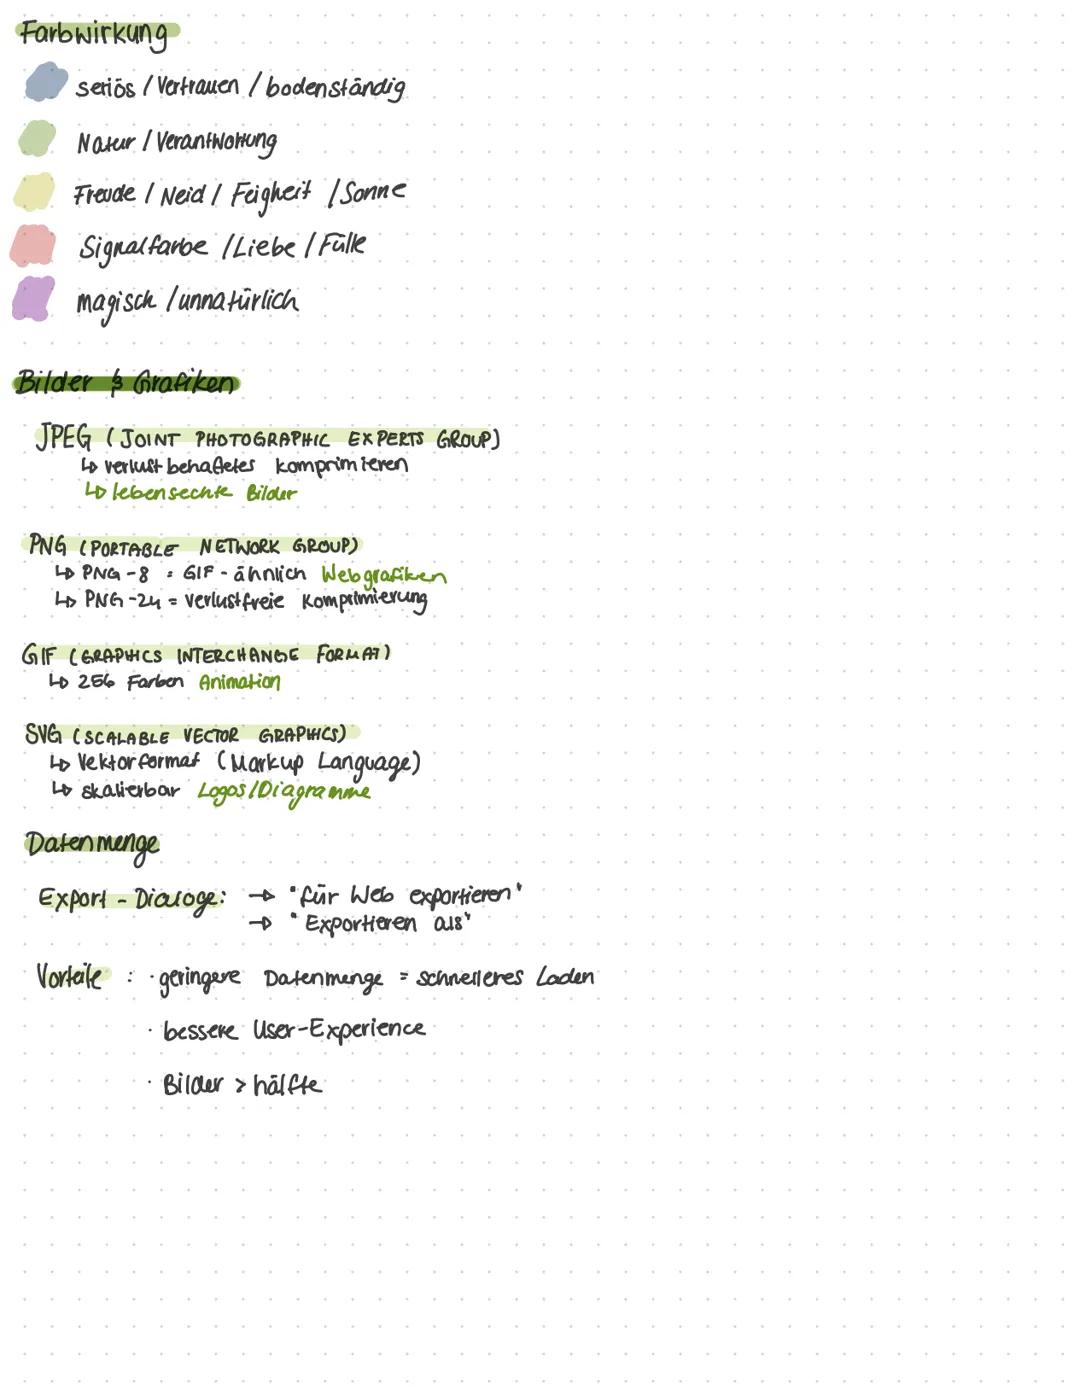 Farbwirkung
seriös / Vertrauen / bodenständig
Natur / Verantwortung
Freude / Neid / Feigheit / Sonne
Signalfarbe / Liebe / Fülle
magisch / unnatürlich
Bilder & Grafiken
JPEG (JOINT PHOTOGRAPHIC EXPERTS GROUP)
↳ verlustbehaftetes komprimieren
↳ lebensechte Bilder
PNG (PORTABLE NETWORK GROUP)
↳ PNG-8 = GIF-ähnlich Webgrafiken
↳ PNG-24 = verlustfreie Komprimierung
GIF (GRAPHICS INTERCHANGE FORMAT)
↳ 256 Farben Animation
SVG (SCALABLE VECTOR GRAPHICS)
↳ Vektorformat (Markup Language)
↳ skalierbar Logos/Diagramme
Datenmenge
Export-Dialoge: → "für Web exportieren"
→ "Exportieren als"
Vorteile : · geringere Datenmenge = schnelleres Laden
· bessere User-Experience
· Bilder > hälfte